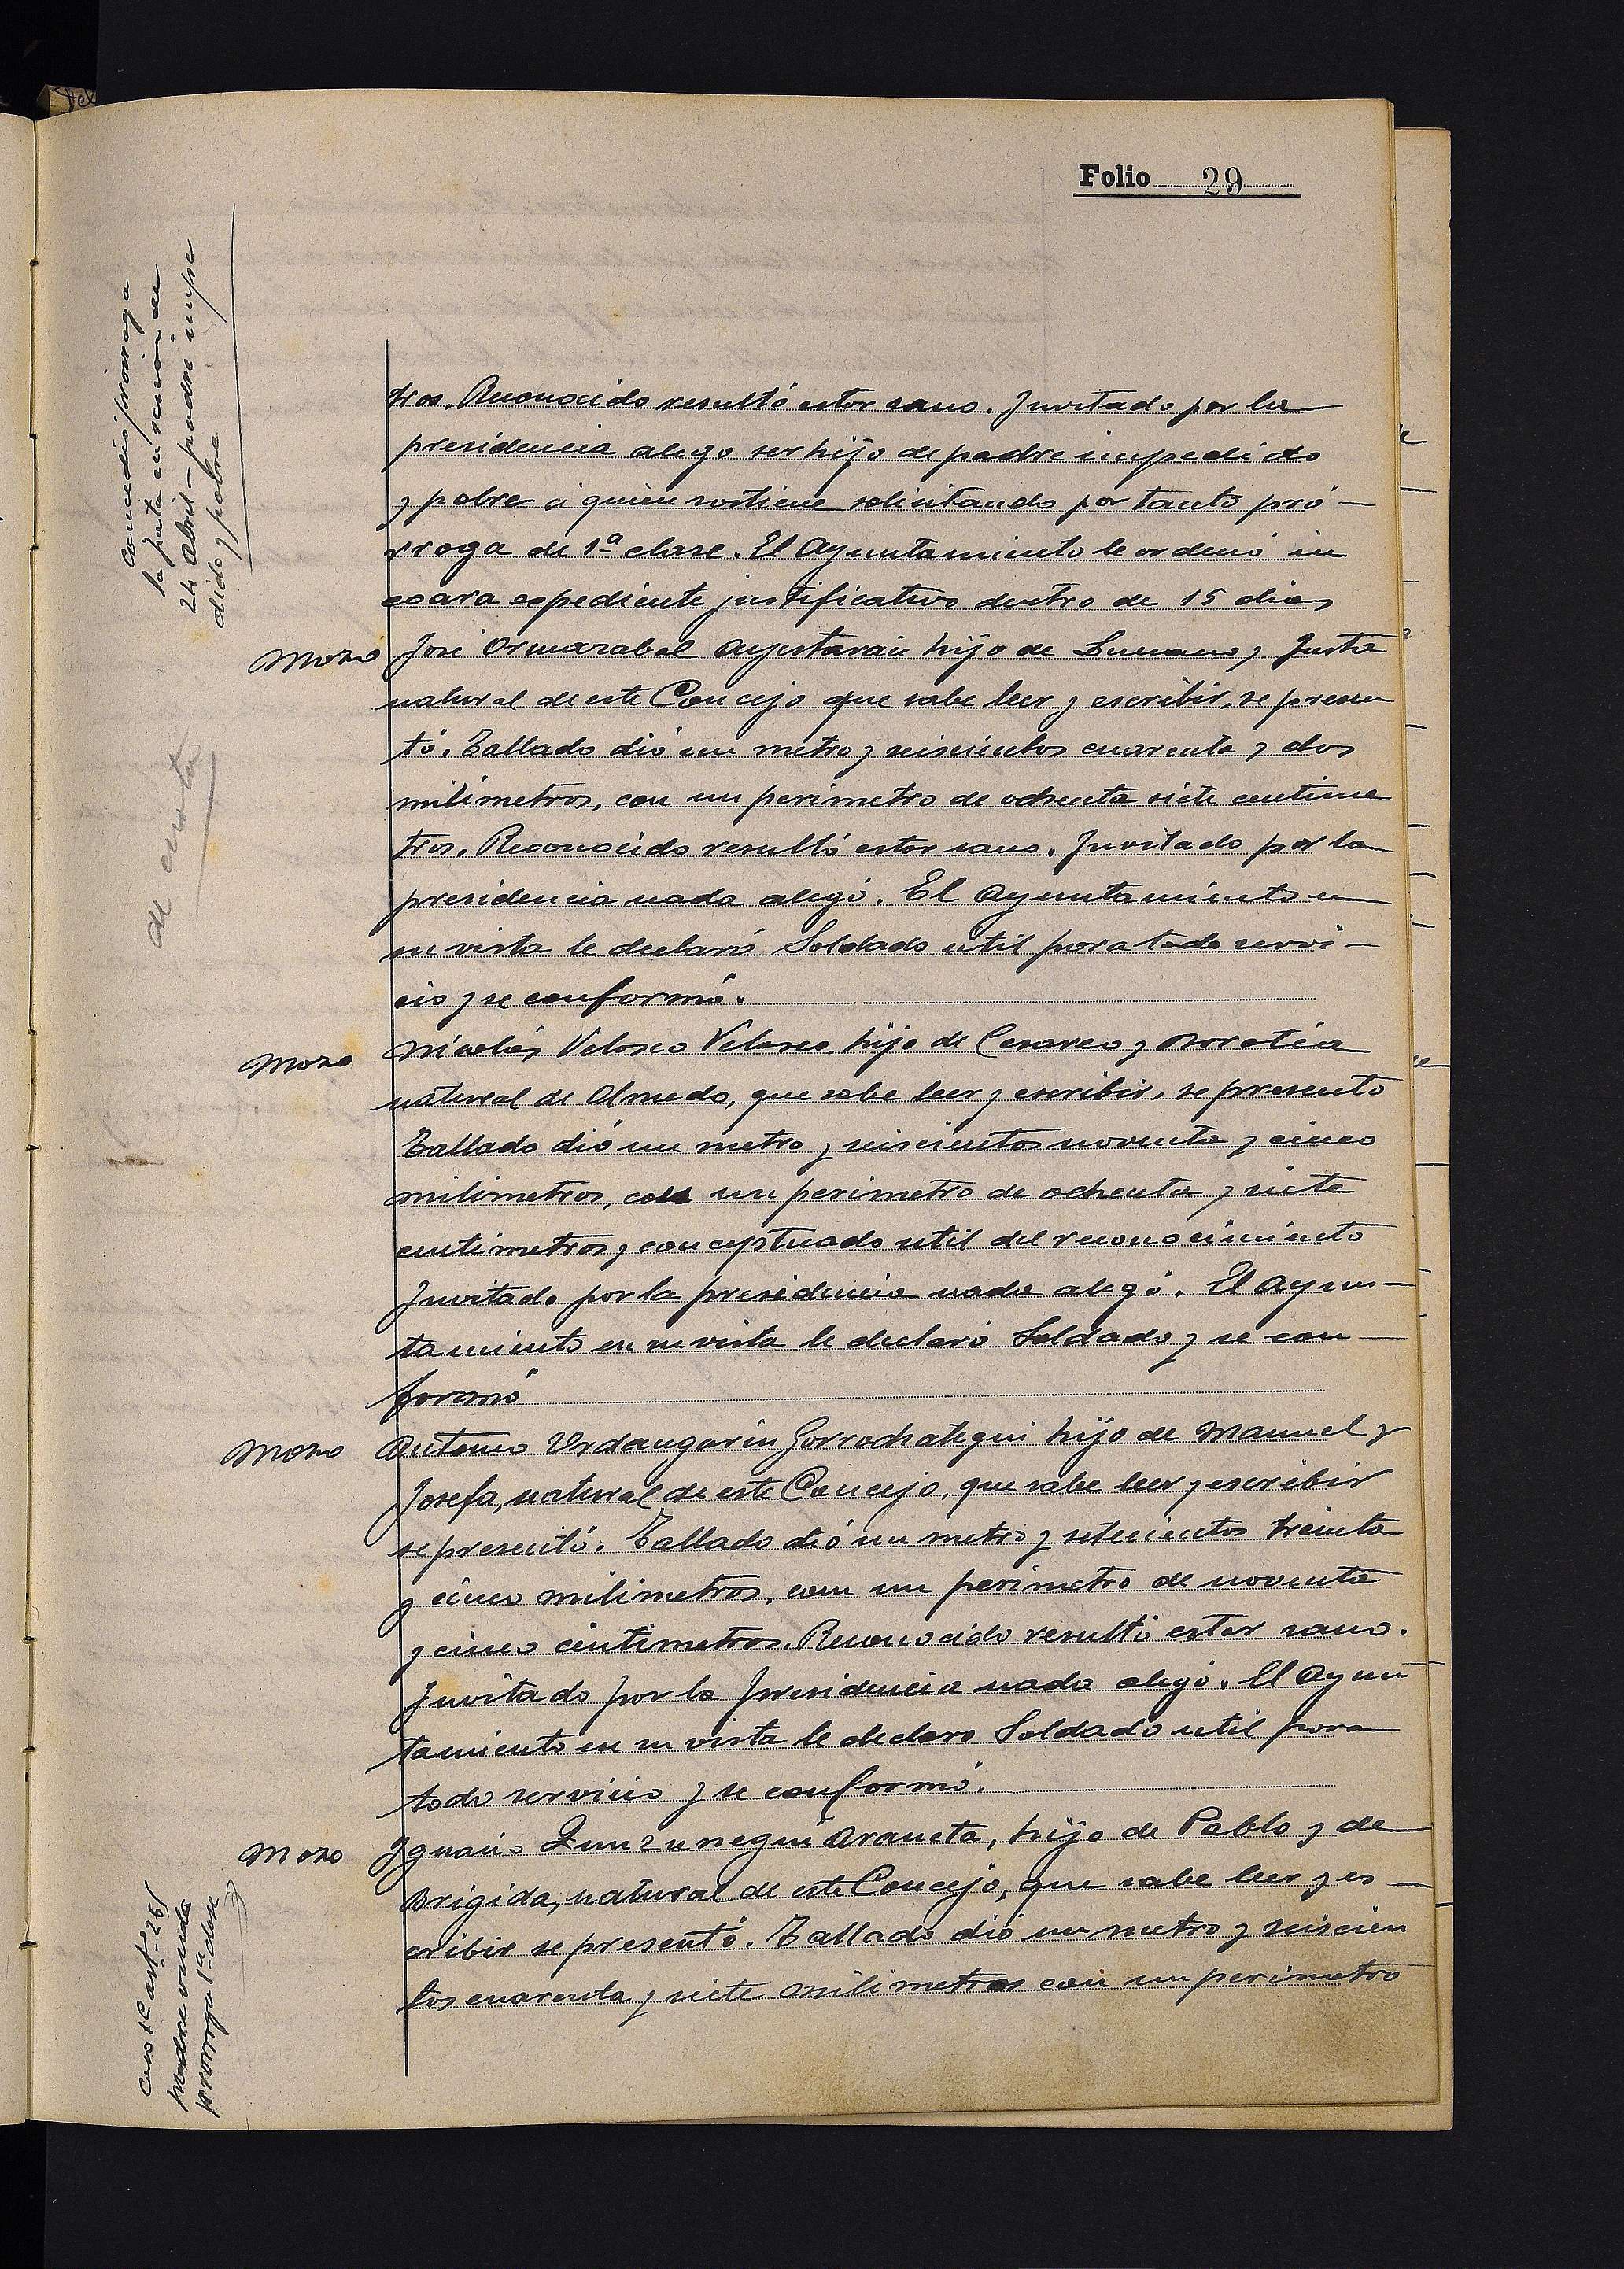 Folio 29
Concedió prórroga
la junta en sesión de
24 Abril - padre impe
dido y pobre
tros. Reconocido resultó estar sano. Invitado por la
presidencia alego ser hijo de padre impedido
y pobre á quien sostiene solicitando por tanto pró-
rroga de 1ª clase. El Ayuntamiento le ordenó in
coara espediente justificativo dentro de 15 dias
Mozo José Ormazabal Ayestarán hijo de y Justa
natural de este Concejo que sabe leer y escribir, se presen
tó. Tallado dió un metro y seiscientos cuarenta y dos
milimetros, con un perimetro de ochenta siete centime
tros. Reconocido resultó estar sano. Invitado por la
presidencia nada alegó. El Ayuntamiento en
su vista le declaró Soldado util para todo servi-
cio y se conformó.
Mozo Nicolás Velasco Velasco, hijo de Cesareo y
natural de Olmedo, que sabe leer y escribir, se presento
Tallado dió un metro y seiscientos noventa y cinco
milimetros, con un perimetro de ochenta y siete
centimetros y conceptuado util del reconocimiento
Invitado por la presidencia nada alegó. El Ayun-
tamiento en su vista le declaró Soldado y se con-
formó
Mozo Antonio Urdangarin Gorrochategui hijo de Manuel y
Josefa, natural de este Concejo, que sabe leer y escribir
se presentó. Tallado dió un metro y setecientos treinta
y cinco milimetros, con un perimetro de noventa
y cinco centimetros. Reconocido resultó estar sano.
Invitado por la Presidencia nada alegó. El Ayun
tamiento en su vista le declaro Soldado util para
todo servicio y se conformó.
Mozo Ignacio Zunzunegui Araneta, hijo de Pablo y de
Brigida, natural de este Concejo, que sabe leer y es-
cribir se presentó. Tallado dió un metro y seiscien
tos cuarenta y siete milimetros con un perimetro
Caso 1º artº 265
Madre viuda
prorroga 1ª clase